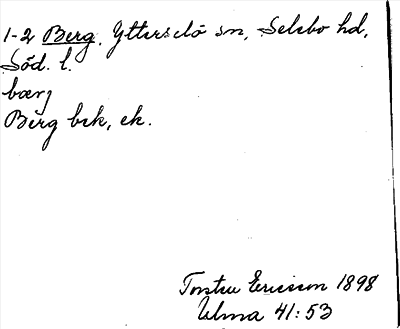 1-2 Berg. Ytterselö sn, Selebo hd,
Söd. l.
bærj
Berg bsk, ek.
Torsten Ericsson 1898
Ulma 41:53